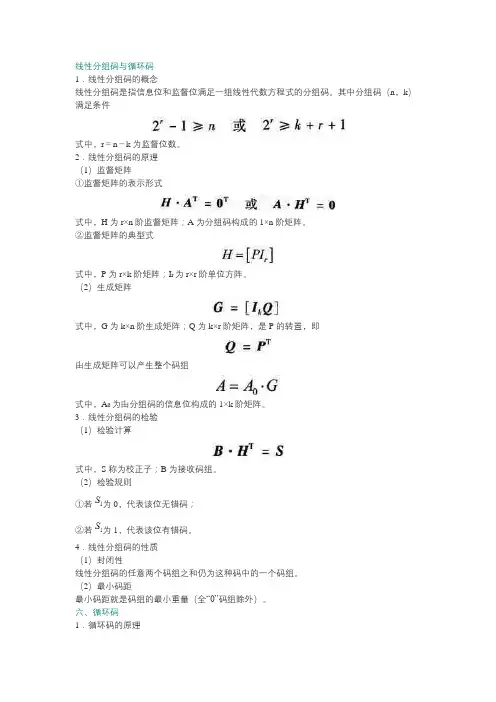 线性分组码与循环码
1．线性分组码的概念
线性分组码是指信息位和监督位满足一组线性代数方程式的分组码。其中分组码（n，k）
满足条件
2^r − 1 ≥ n 或 2^r ≥ k + r + 1
式中，r＝n－k 为监督位数。
2．线性分组码的原理
（1）监督矩阵
①监督矩阵的表示形式
H · A^T = 0^T 或 A · H^T = 0
式中，H 为 r×n 阶监督矩阵；A 为分组码构成的 1×n 阶矩阵。
②监督矩阵的典型式
H = [PI_r]
式中，P 为 r×k 阶矩阵；I_r 为 r×r 阶单位方阵。
（2）生成矩阵
G = [I_k Q]
式中，G 为 k×n 阶生成矩阵；Q 为 k×r 阶矩阵，是 P 的转置，即
Q = P^T
由生成矩阵可以产生整个码组
A = A_0 · G
式中，A_0 为由分组码的信息位构成的 1×k 阶矩阵。
3．线性分组码的检验
（1）检验计算
B · H^T = S
式中，S 称为校正子；B 为接收码组。
（2）检验规则
①若 S_i 为 0，代表该位无错码；
②若 S_i 为 1，代表该位有错码。
4．线性分组码的性质
（1）封闭性
线性分组码的任意两个码组之和仍为这种码中的一个码组。
（2）最小码距
最小码距就是码组的最小重量（全“0”码组除外）。
六、循环码
1．循环码的原理